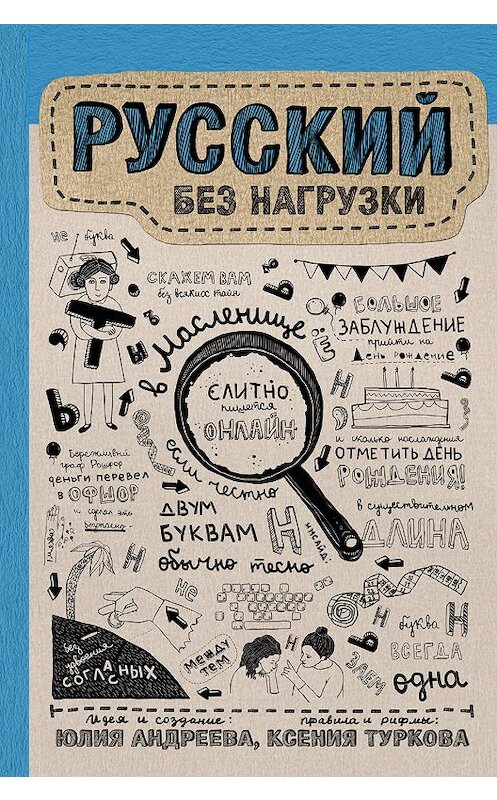 РУССКИЙ
БЕЗ НАГРУЗКИ
не буква
Т
СКАЖЕМ ВАМ
без всяких тайн
в масленище
СЛИТНО
пишется
ОНЛАЙН
БОЛЬШОЕ
ЗАБЛУЖДЕНИЕ
прийти на
День рождение
и сколько наслаждения
ОТМЕТИТЬ ДЕНЬ
РОЖДЕНИЯ!
Бережливый
граф Рошфор
деньги перевел
в ОФШОР
и сделал это
если честно
ДВУМ
БУКВАМ Н
обычно тесно
инсайд:
в существительном
ДЛИНА
буква Н
ВСЕГДА
одна
без
удвоения
СОГЛАСНЫХ
не
МЕЖДУ
ТЕМ
ЗАЕМ
Идея и создание: правила и рифмы:
ЮЛИЯ АНДРЕЕВА, КСЕНИЯ ТУРКОВА